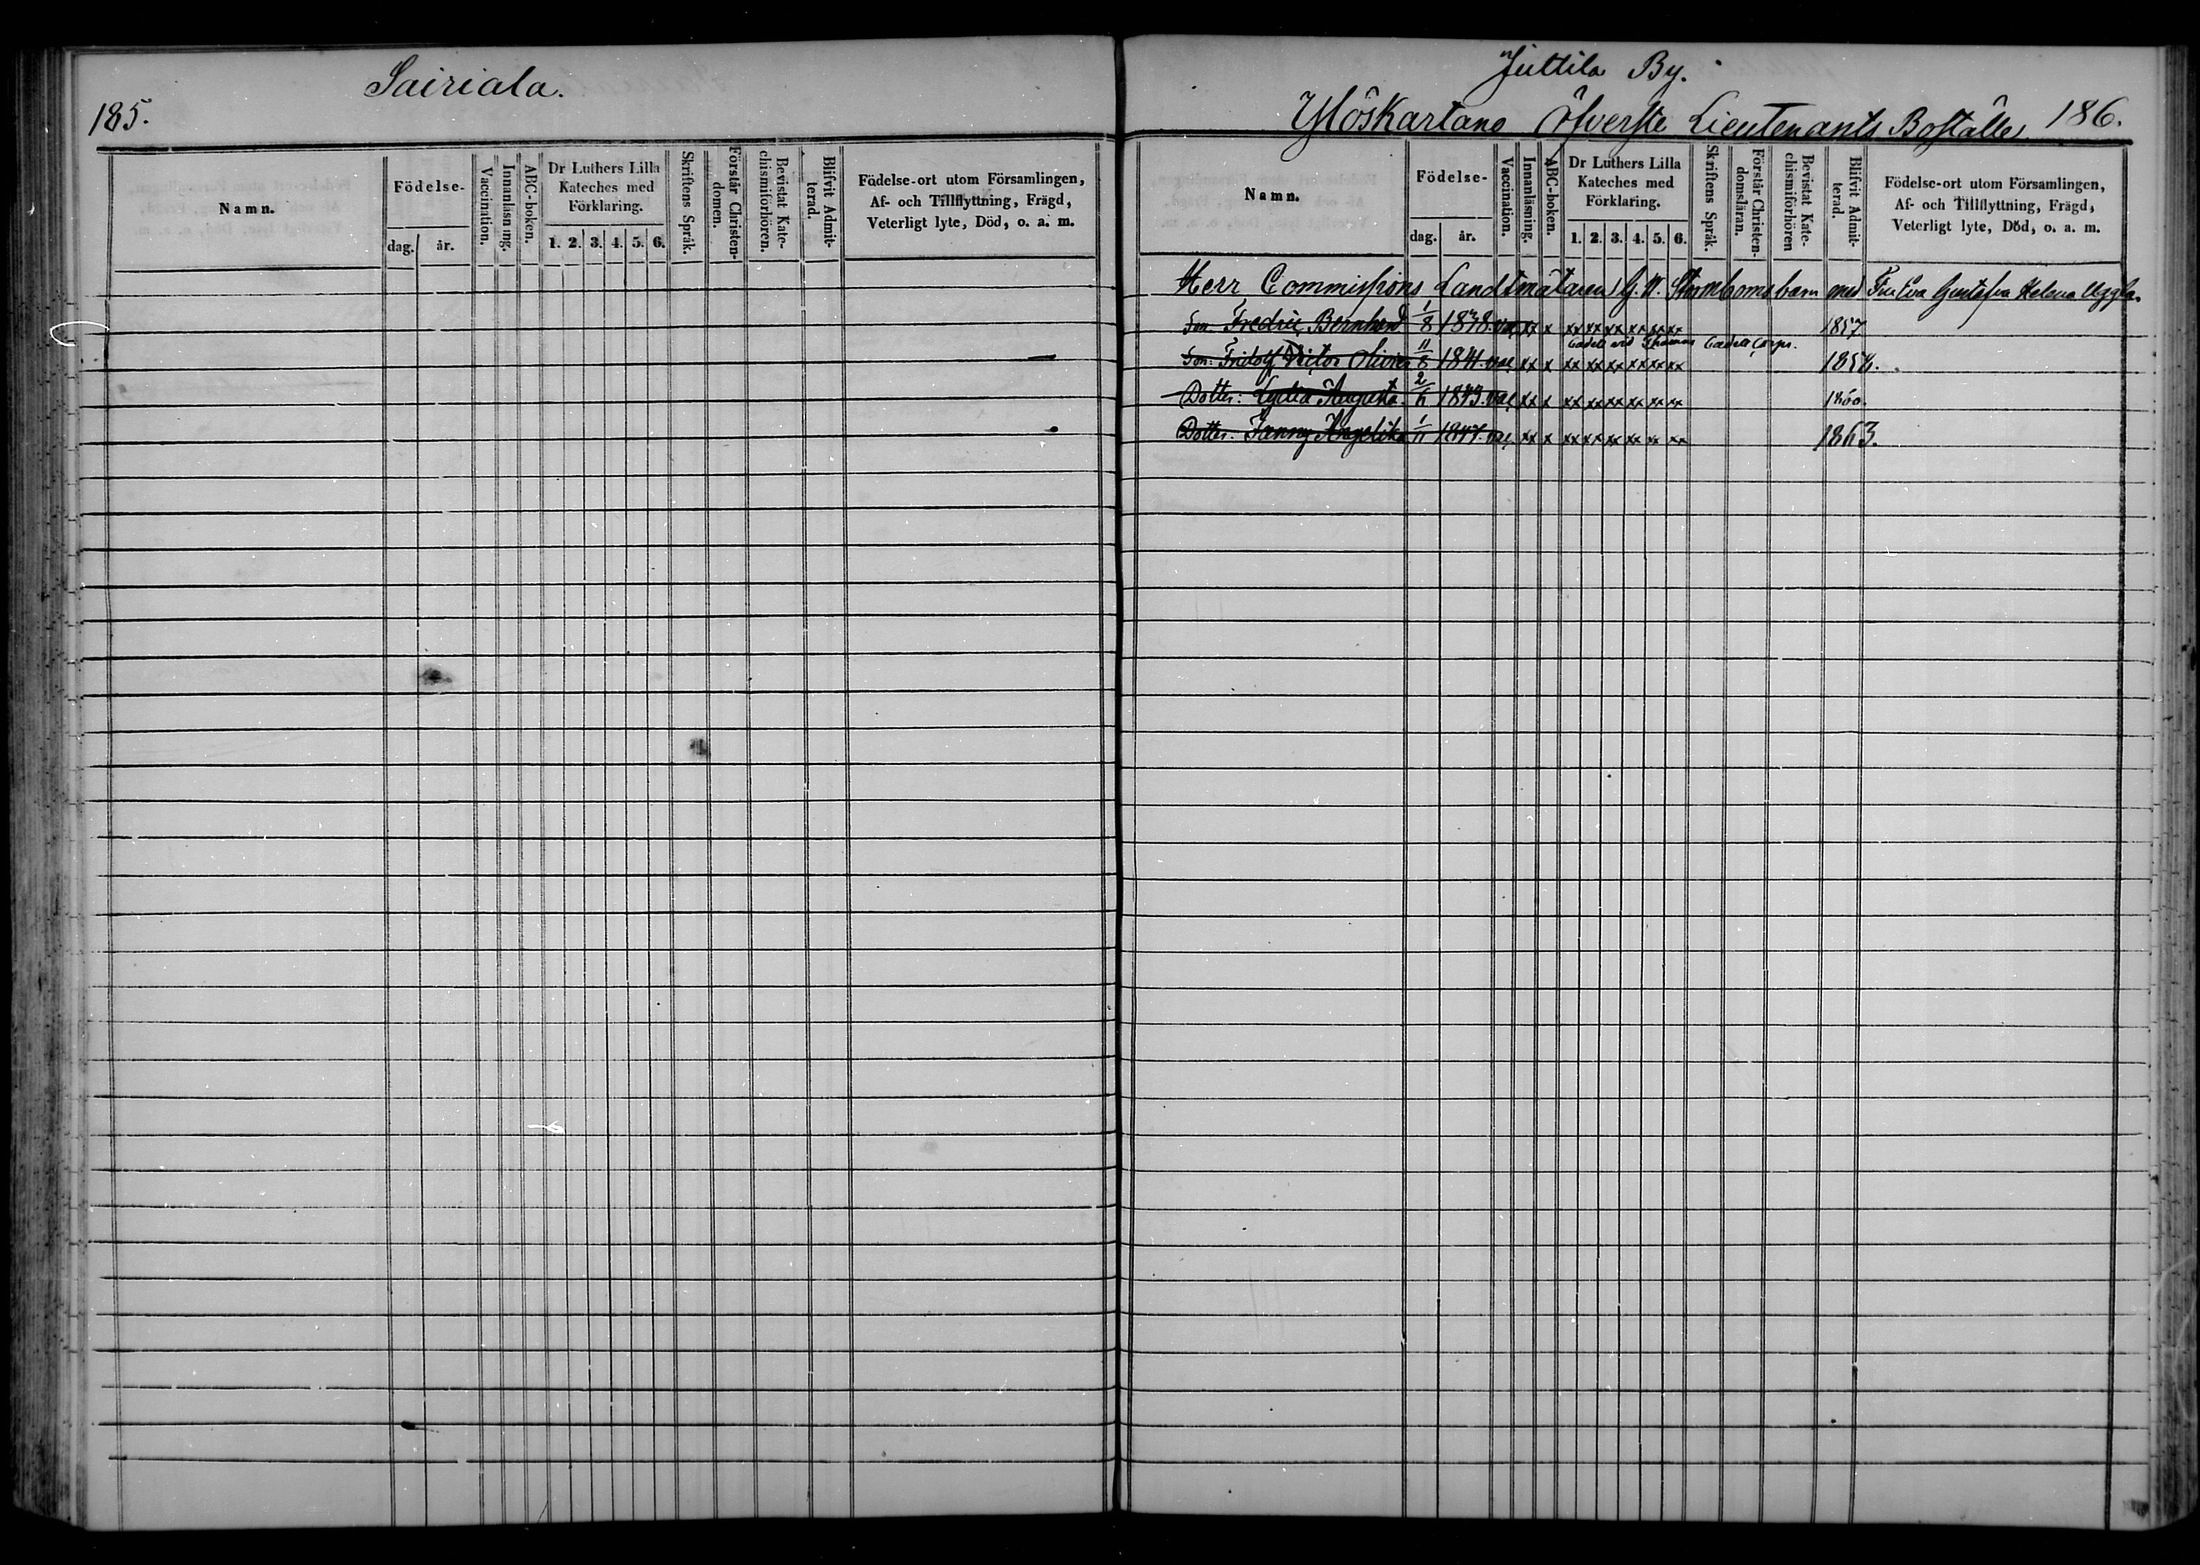 Sairiala.
185.
Namn.
Födelse-
dag. år.
Vaccination.
Innanläsning.
ABC-boken.
Dr Luthers Lilla
Kateches med
Förklaring.
1. 2. 3. 4. 5. 6.
Skriftens Språk.
Förstår Christen-
domen.
Bevistat Kate-
chismiförhören.
Blifvit Admit-
terad.
Födelse-ort utom Församlingen,
Af- och Tillflyttning, Frägd,
Veterligt lyte, Död, o. a. m.
Juttila By.
Ylöskartano Öfverste Lieutenants Boställe 186.
Namn.
Födelse-
dag. år.
Vaccination.
Innanläsning.
ABC-boken.
Dr Luthers Lilla
Kateches med
Förklaring.
1. 2. 3. 4. 5. 6.
Skriftens Språk.
Förstår Christen-
domsläran.
Bevistat Kate-
chismiförhören
Blifvit Admit-
terad.
Födelse-ort utom Församlingen,
Af- och Tillflyttning, Frägd,
Veterligt lyte, Död, o. a. m.
Herr Commissions Landtmätaren G. W. Strömboms barn med Fru Eva Gustafva Helena Uggla.
Son: Fredric Bernhard 1/8 1838. vac xx x xx xx xx xx xx xx 1857
Cadett vid Finska Cadett Corps.
Son: Fridolf Victor Olivier 11/8 1841. vac xx x xx xx xx xx xx xx 1858.
Dotter: Lydia Augusta 1843. vac xx x xx xx xx xx xx xx 1860.
Dotter: Fanny Angelika 1/11 1847. vac. xx x xx xx xx xx xx xx 1863.